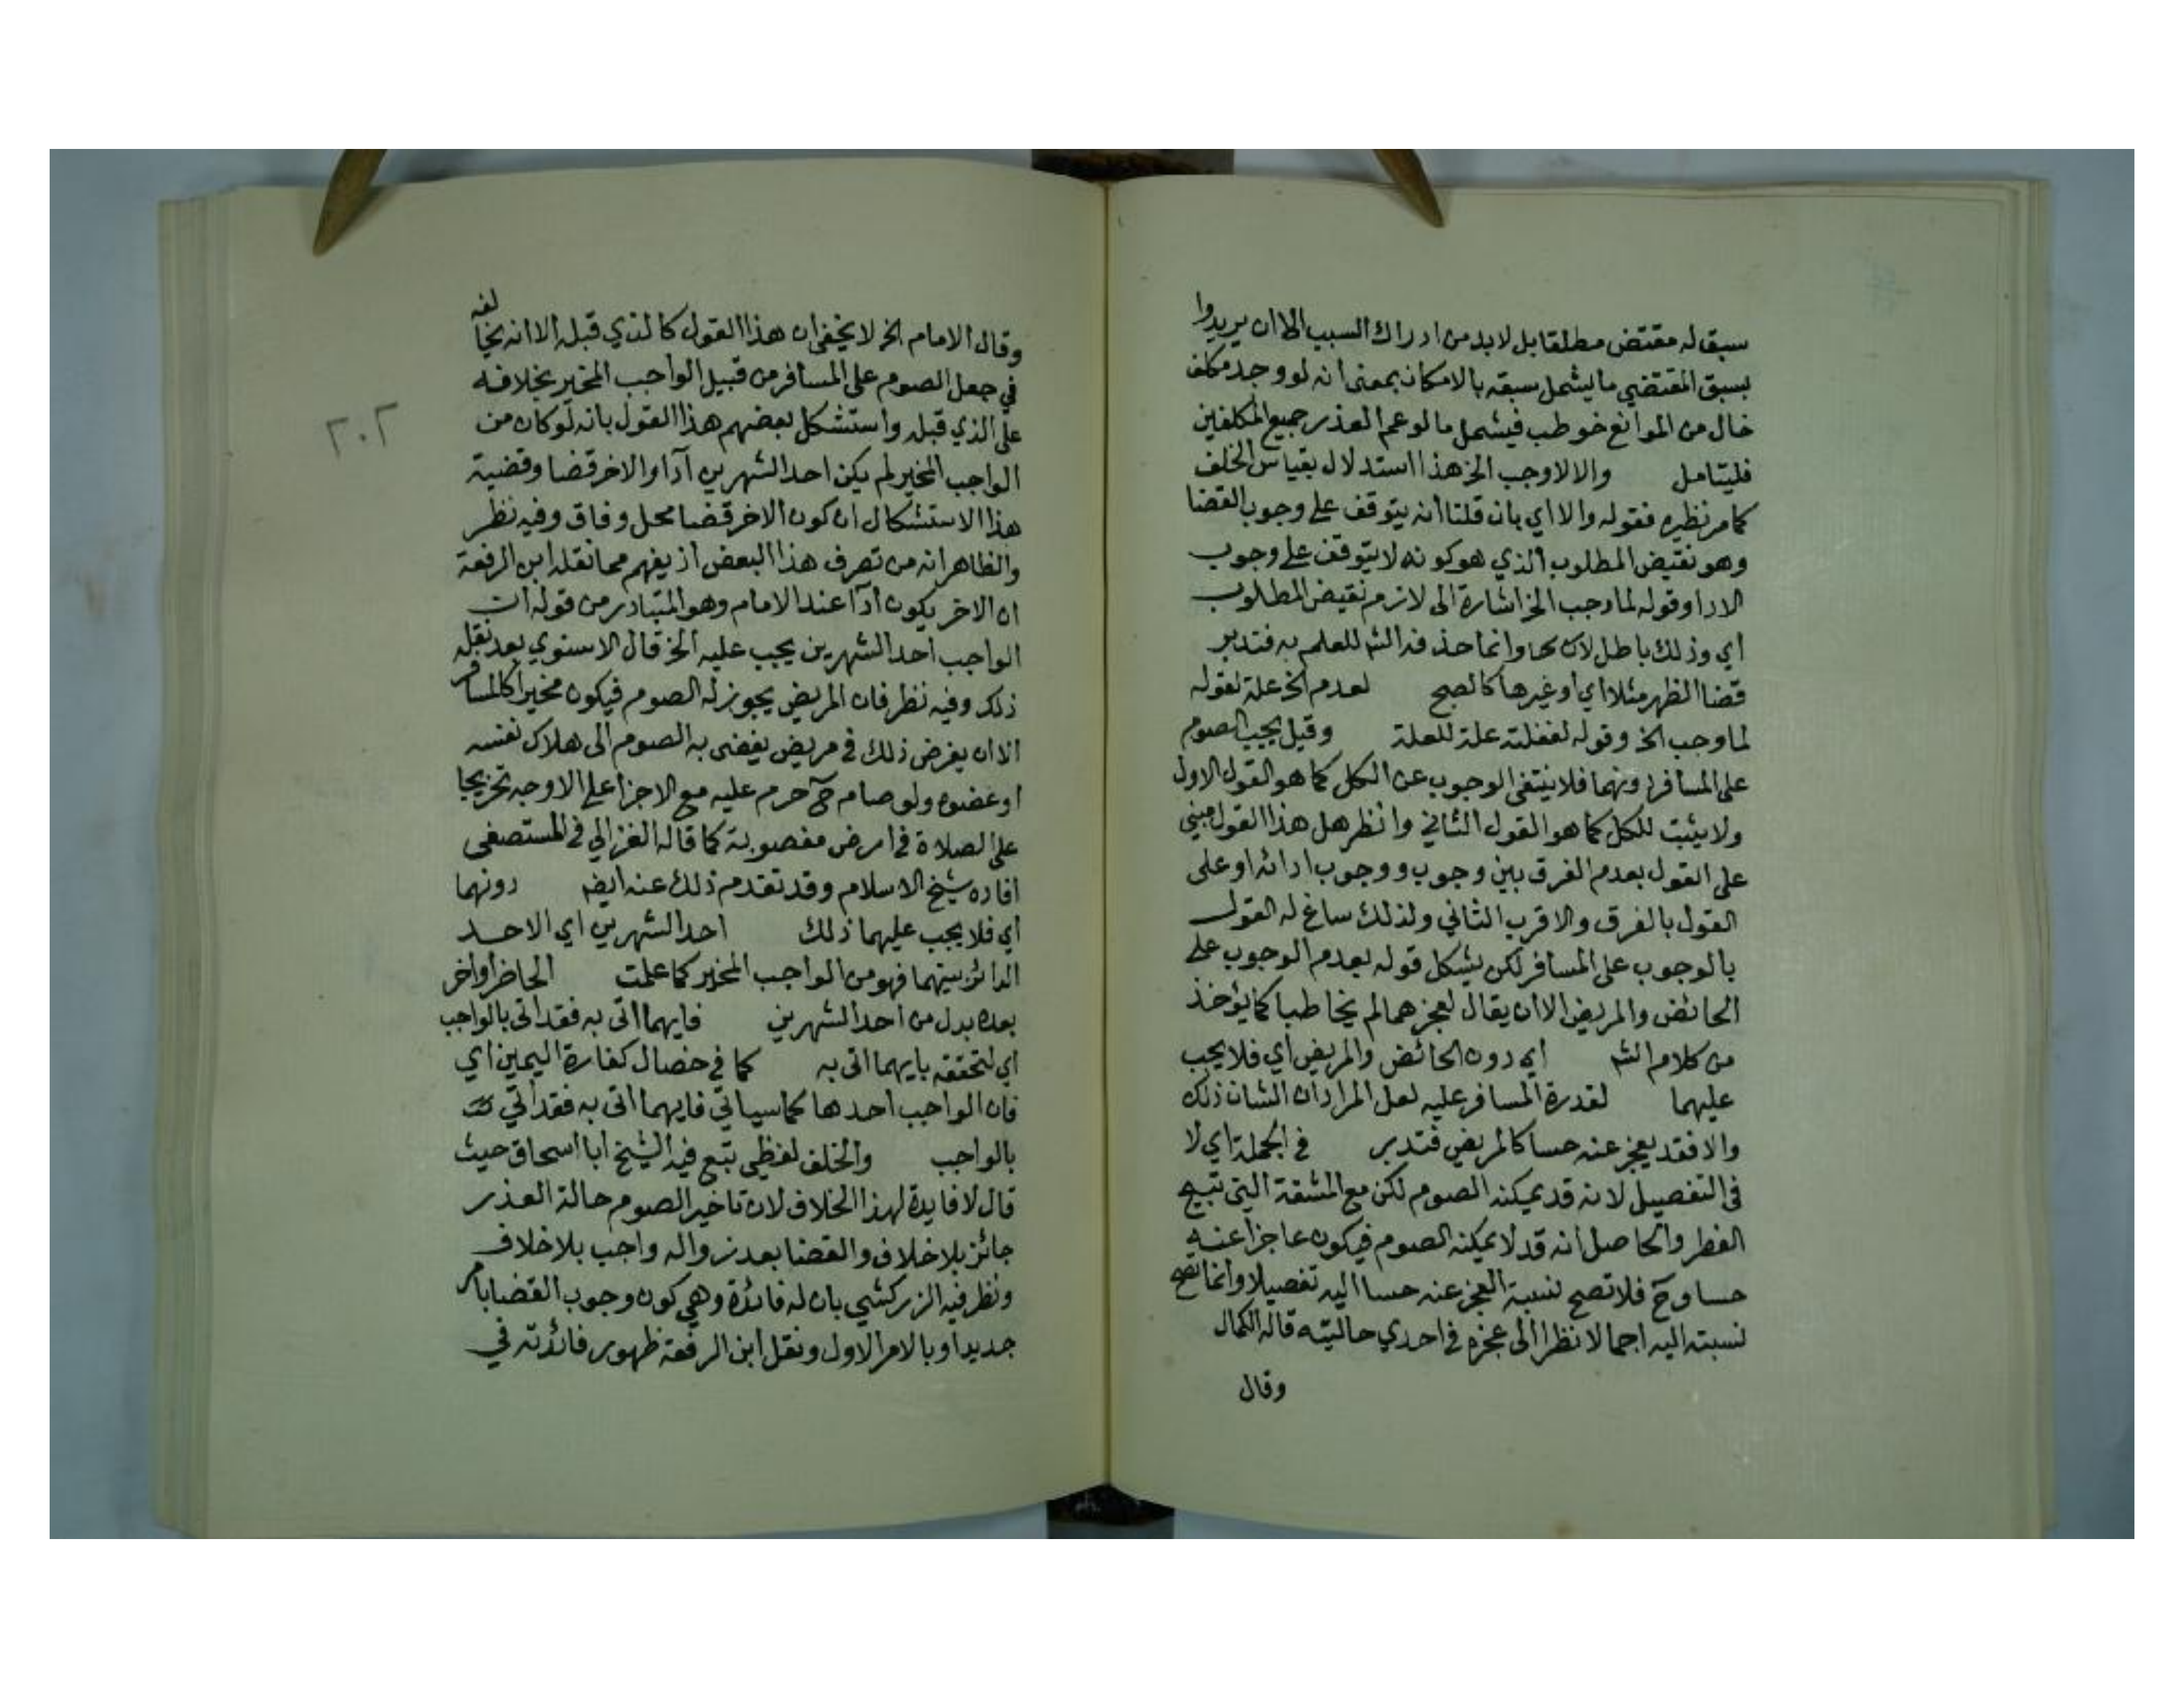 سبق له مقتض مطلقا بل لابد من ادراك السبب الا ان يريدوا
بسبق المقتضي ما يشمل سبقه بالامكان بمعنى انه لو وجد مكلف
خال من الموانع خوطب فيشمل ما لو عم العذر جميع المكلفين
فليتامل والا لا وجب الخ هذا استدلال بقياس الخلف
كما مر نظيره فقوله والا اي بان قلنا انه يتوقف على وجوب القضا
وهو نقيض المطلوب الذي هو كونه لا يتوقف على وجوب
الادا وقوله لما وجب الخ اشارة الى لازم نقيض المطلوب
اي وذلك باطل لان وانما حذفه الش للعلم به فتدبر
قضا الظهر مثلا اي او غيرها كالصبح لعدم الخ علة لقوله
لما وجب الخ وقوله لغفلته علة للعلة وقيل يجب الصوم
على المسافر دونهما فلا ينتفي الوجوب عن الكل كما هو القول الاول
ولا يثبت للكل كما هو القول الثاني وانظر هل هذا القول مبني
على القول بعدم الفرق بين وجوب ووجوب ادائه او على
القول بالفرق والاقرب الثاني ولذلك ساغ له القول
بالوجوب على المسافر لكن يشكل قوله بعدم الوجوب على
الحائض والمريض الا ان يقال لعجزهما لم يخاطبا كما يؤخذ
من كلام الش اي دون الحائض والمريض اي فلا يجب
عليهما لقدرة المسافر عليه لعل المراد ان الشان ذلك
والا فقد يعجز عنه حسا كالمريض فتدبر في الجملة اي لا
في التفصيل لانه قد يمكنه الصوم لكن مع المشقة التي تبيح
الفطر والحاصل انه قد لا يمكنه الصوم فيكون عاجزا عنه
حسا وح فلا تصح نسبة العجز عنه حسا اليه تفصيلا وانما تصح
نسبته اليه اجمالا نظرا الى عجزه في احدي حالتيه قاله الكمال
وقال
٢٠٢
وقال الامام الخ لا يخفى ان هذا القول كالذي قبله الا انه يخالفه
في جعل الصوم على المسافر من قبيل الواجب المخير بخلافه
على الذي قبله واستشكل بعضهم هذا القول بانه لو كان من
الواجب المخير لم يكن احد الشهرين آدا والاخر قضا وقضية
هذا الاستشكال ان كون الاخر قضا محل وفاق وفيه نظر
والظاهر انه من تصرف هذا البعض اذ يفهم مما نقله ابن الرفعة
ان الاخر يكون ادآ عند الامام وهو المتبادر من قوله ان
الواجب احد الشهرين يجب عليه الخ قال الاسنوي بعد نقله
ذلك وفيه نظر فان المريض يجوز له الصوم فيكون مخيرا كالمسافر
الا ان يفرض ذلك في مريض يفضى به الصوم الى هلاك نفسه
او عضوه ولو صام ح حرم عليه مع الاجزا على الاوجه تخريجا
على الصلاة في ارض مغصوبة كما قاله الغزالي في المستصفى
افاده شيخ الاسلام وقد تقدم ذلك عنه ايضا دونهما
اي فلا يجب عليهما ذلك احد الشهرين اي الاحد
الدائر بينهما فهو من الواجب المخير كما علمت الحاضر او اخر
بعده بدل من احد الشهرين فايهما اتى به فقد اتى بالواجب
اي لتحققه بايهما اتى به كما في خصال كفارة اليمين اي
فان الواجب احدها كما سياتي فايهما اتى به فقد اتي
بالواجب والخلف لفظي تبع فيه الشيخ ابا اسحاق حيث
قال لا فايدة لهذا الخلاف لان تاخير الصوم حالة العذر
جائز بلا خلاف والقضا بعد زواله واجب بلا خلاف
ونظر فيه الزركشي بان له فائدة وهي كون وجوب القضا بامر
جديد او بالامر الاول ونقل ابن الرفعة ظهور فائدته في